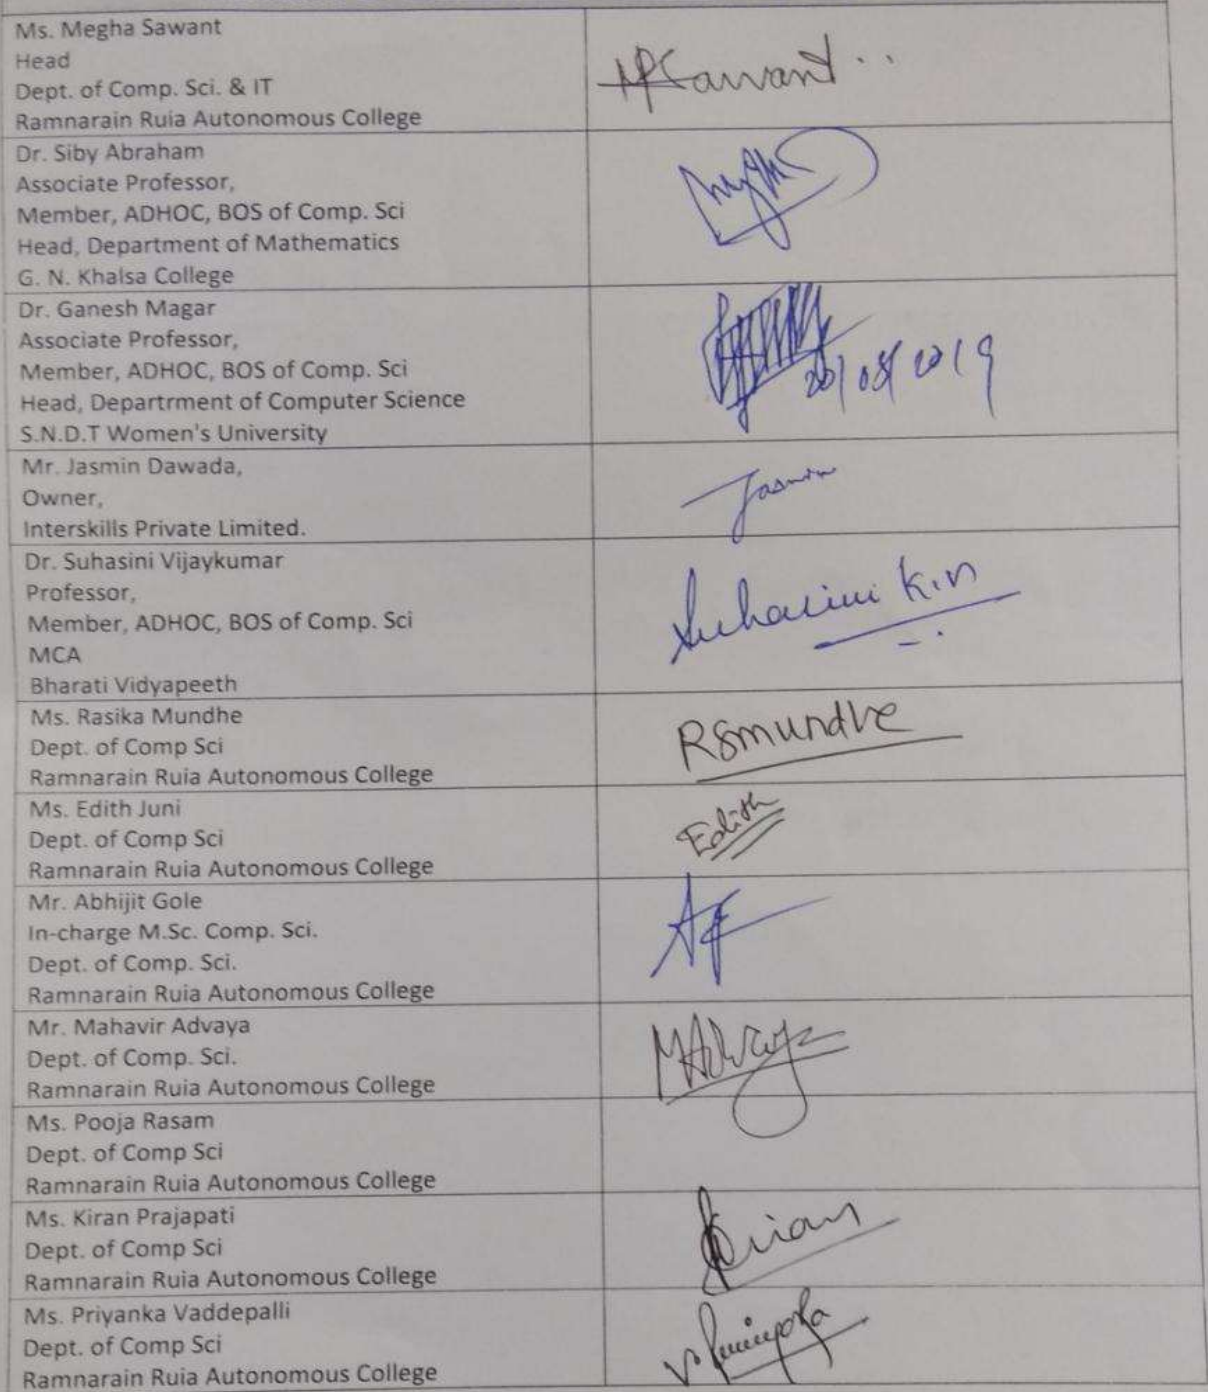 Ms. Megha Sawant
Head
Dept. of Comp. Sci. & IT
Ramnarain Ruia Autonomous College
Dr. Siby Abraham
Associate Professor,
Member, ADHOC, BOS of Comp. Sci
Head, Department of Mathematics
G. N. Khalsa College
Dr. Ganesh Magar
Associate Professor,
Member, ADHOC, BOS of Comp. Sci
Head, Departrment of Computer Science
S.N.D.T Women's University
2019
Mr. Jasmin Dawada,
Owner,
Interskills Private Limited.
Jasmin
Dr. Suhasini Vijaykumar
Professor,
Member, ADHOC, BOS of Comp. Sci
MCA
Bharati Vidyapeeth
Suhasini K.V
Ms. Rasika Mundhe
Dept. of Comp Sci
Ramnarain Ruia Autonomous College
RSmundhe
Ms. Edith Juni
Dept. of Comp Sci
Ramnarain Ruia Autonomous College
Edith
Mr. Abhijit Gole
In-charge M.Sc. Comp. Sci.
Dept. of Comp. Sci.
Ramnarain Ruia Autonomous College
Mr. Mahavir Advaya
Dept. of Comp. Sci.
Ramnarain Ruia Autonomous College
Ms. Pooja Rasam
Dept. of Comp Sci
Ramnarain Ruia Autonomous College
Ms. Kiran Prajapati
Dept. of Comp Sci
Ramnarain Ruia Autonomous College
Ms. Priyanka Vaddepalli
Dept. of Comp Sci
Ramnarain Ruia Autonomous College